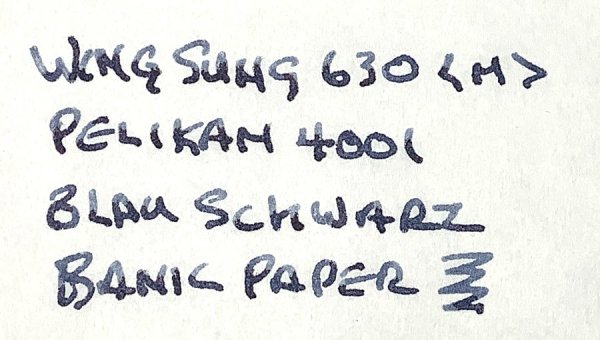 WING SUNG 630 <M>
PELIKAN 4001
BLAU SCHWARZ
BANK PAPER